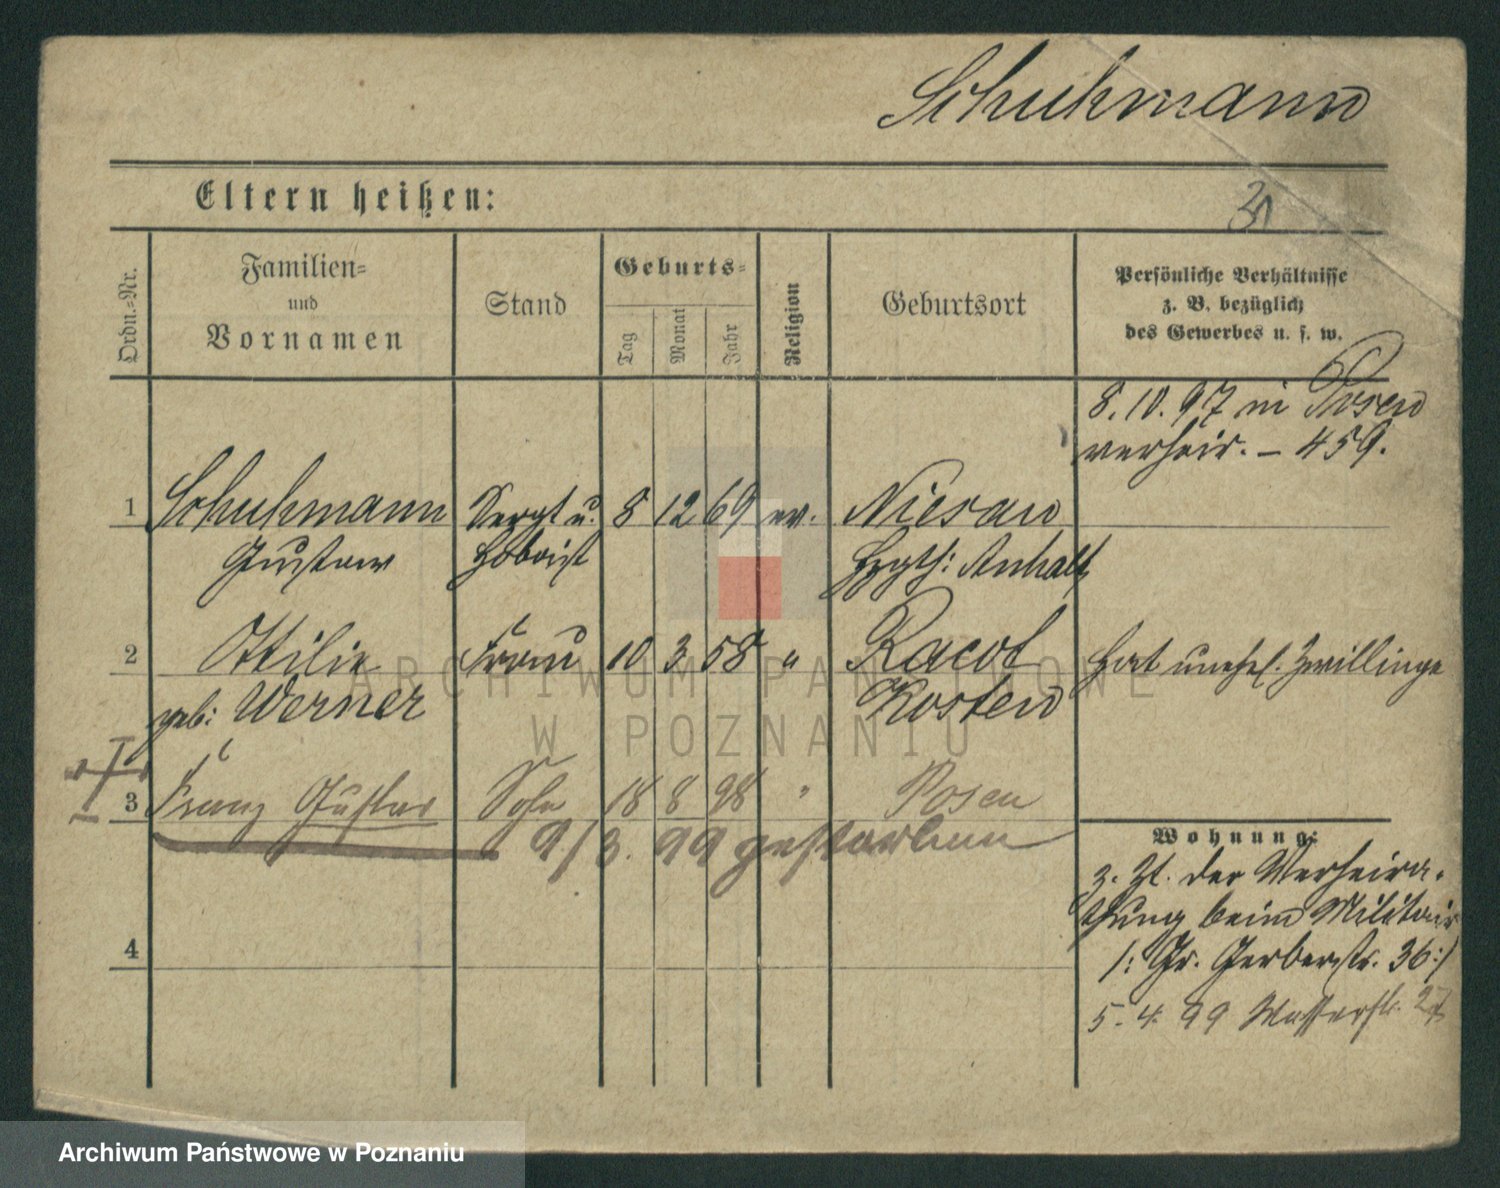 Schuhmann
Eltern heißen:
Ordn.-Nr.
Familien-
und
Vornamen
Stand
Geburts-
Tag
Monat
Jahr
Religion
Geburtsort
Persönliche Verhältnisse
z. B. bezüglich
des Gewerbes u. s. w.
8. 10. 97 in Posen
verheir. – 459.
1 Schuhmann Sergt u. 8 12 69 ev. Niesau
Gustav Hoboist Hzgth: Anhalt
2 Ottilie Frau 10 3 58 " Racot Hat unehel. Zwillinge
geb: Werner Kosten
3 Franz Gustav Sohn 18 8 98 " Posen
9/3. 99 gestorben
Wohnung:
z. Zt. der Verheira-
thung beim Militair
/: Gr. Gerberstr. 36 :/
4
5. 4. 99 Wasserstr. 27
ARCHIWUM PAŃSTWOWE
W POZNANIU
Archiwum Państwowe w Poznaniu